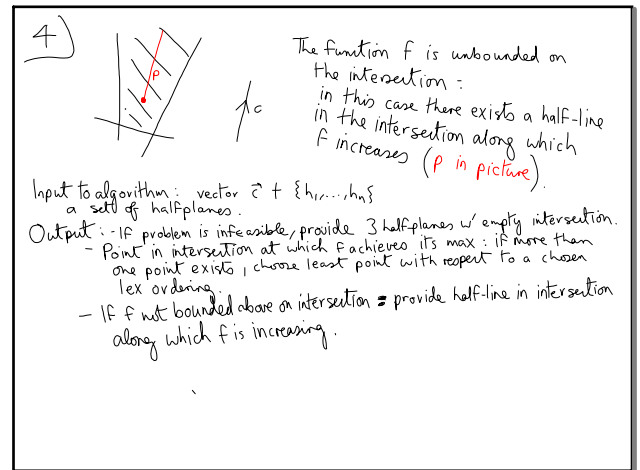 4)
The function f is unbounded on
the intersection :
in this case there exists a half-line
in the intersection along which
f increases (ρ in picture).
ρ
c
Input to algorithm : vector c⃗ + {h₁,...,hₙ}
a set of halfplanes.
Output : - If problem is infeasible, provide 3 halfplanes w/ empty intersection.
- Point in intersection at which f achieves its max : if more than
one point exists, choose least point with respect to a chosen
lex ordering.
- If f not bounded above on intersection = provide half-line in intersection
along which f is increasing.